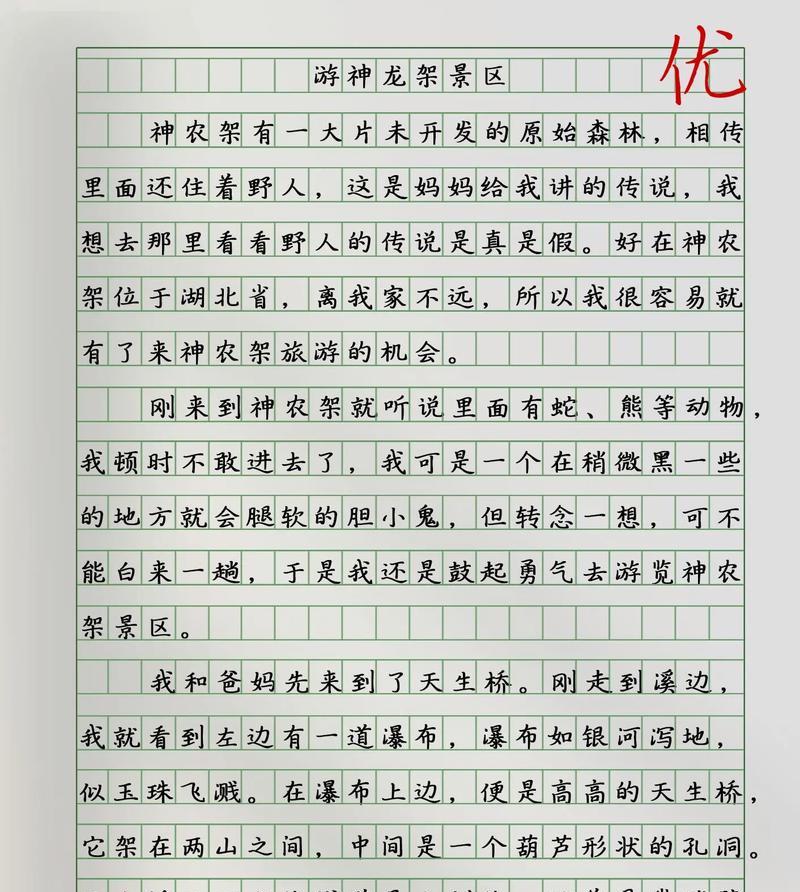 优
游神龙架景区
神农架有一大片未开发的原始森林，相传
里面还住着野人，这是妈妈给我讲的传说，我
想去那里看看野人的传说是真是假。好在神农
架位于湖北省，离我家不远，所以我很容易就
有了来神农架旅游的机会。
刚来到神农架就听说里面有蛇、熊等动物，
我顿时不敢进去了，我可是一个在稍微黑一些
的地方就会腿软的胆小鬼，但转念一想，可不
能白来一趟，于是我还是鼓起勇气去游览神农
架景区。
我和爸妈先来到了天生桥。刚走到溪边，
我就看到左边有一道瀑布，瀑布如银河泻地，
似玉珠飞溅。在瀑布上边，便是高高的天生桥，
它架在两山之间，中间是一个葫芦形状的孔洞。